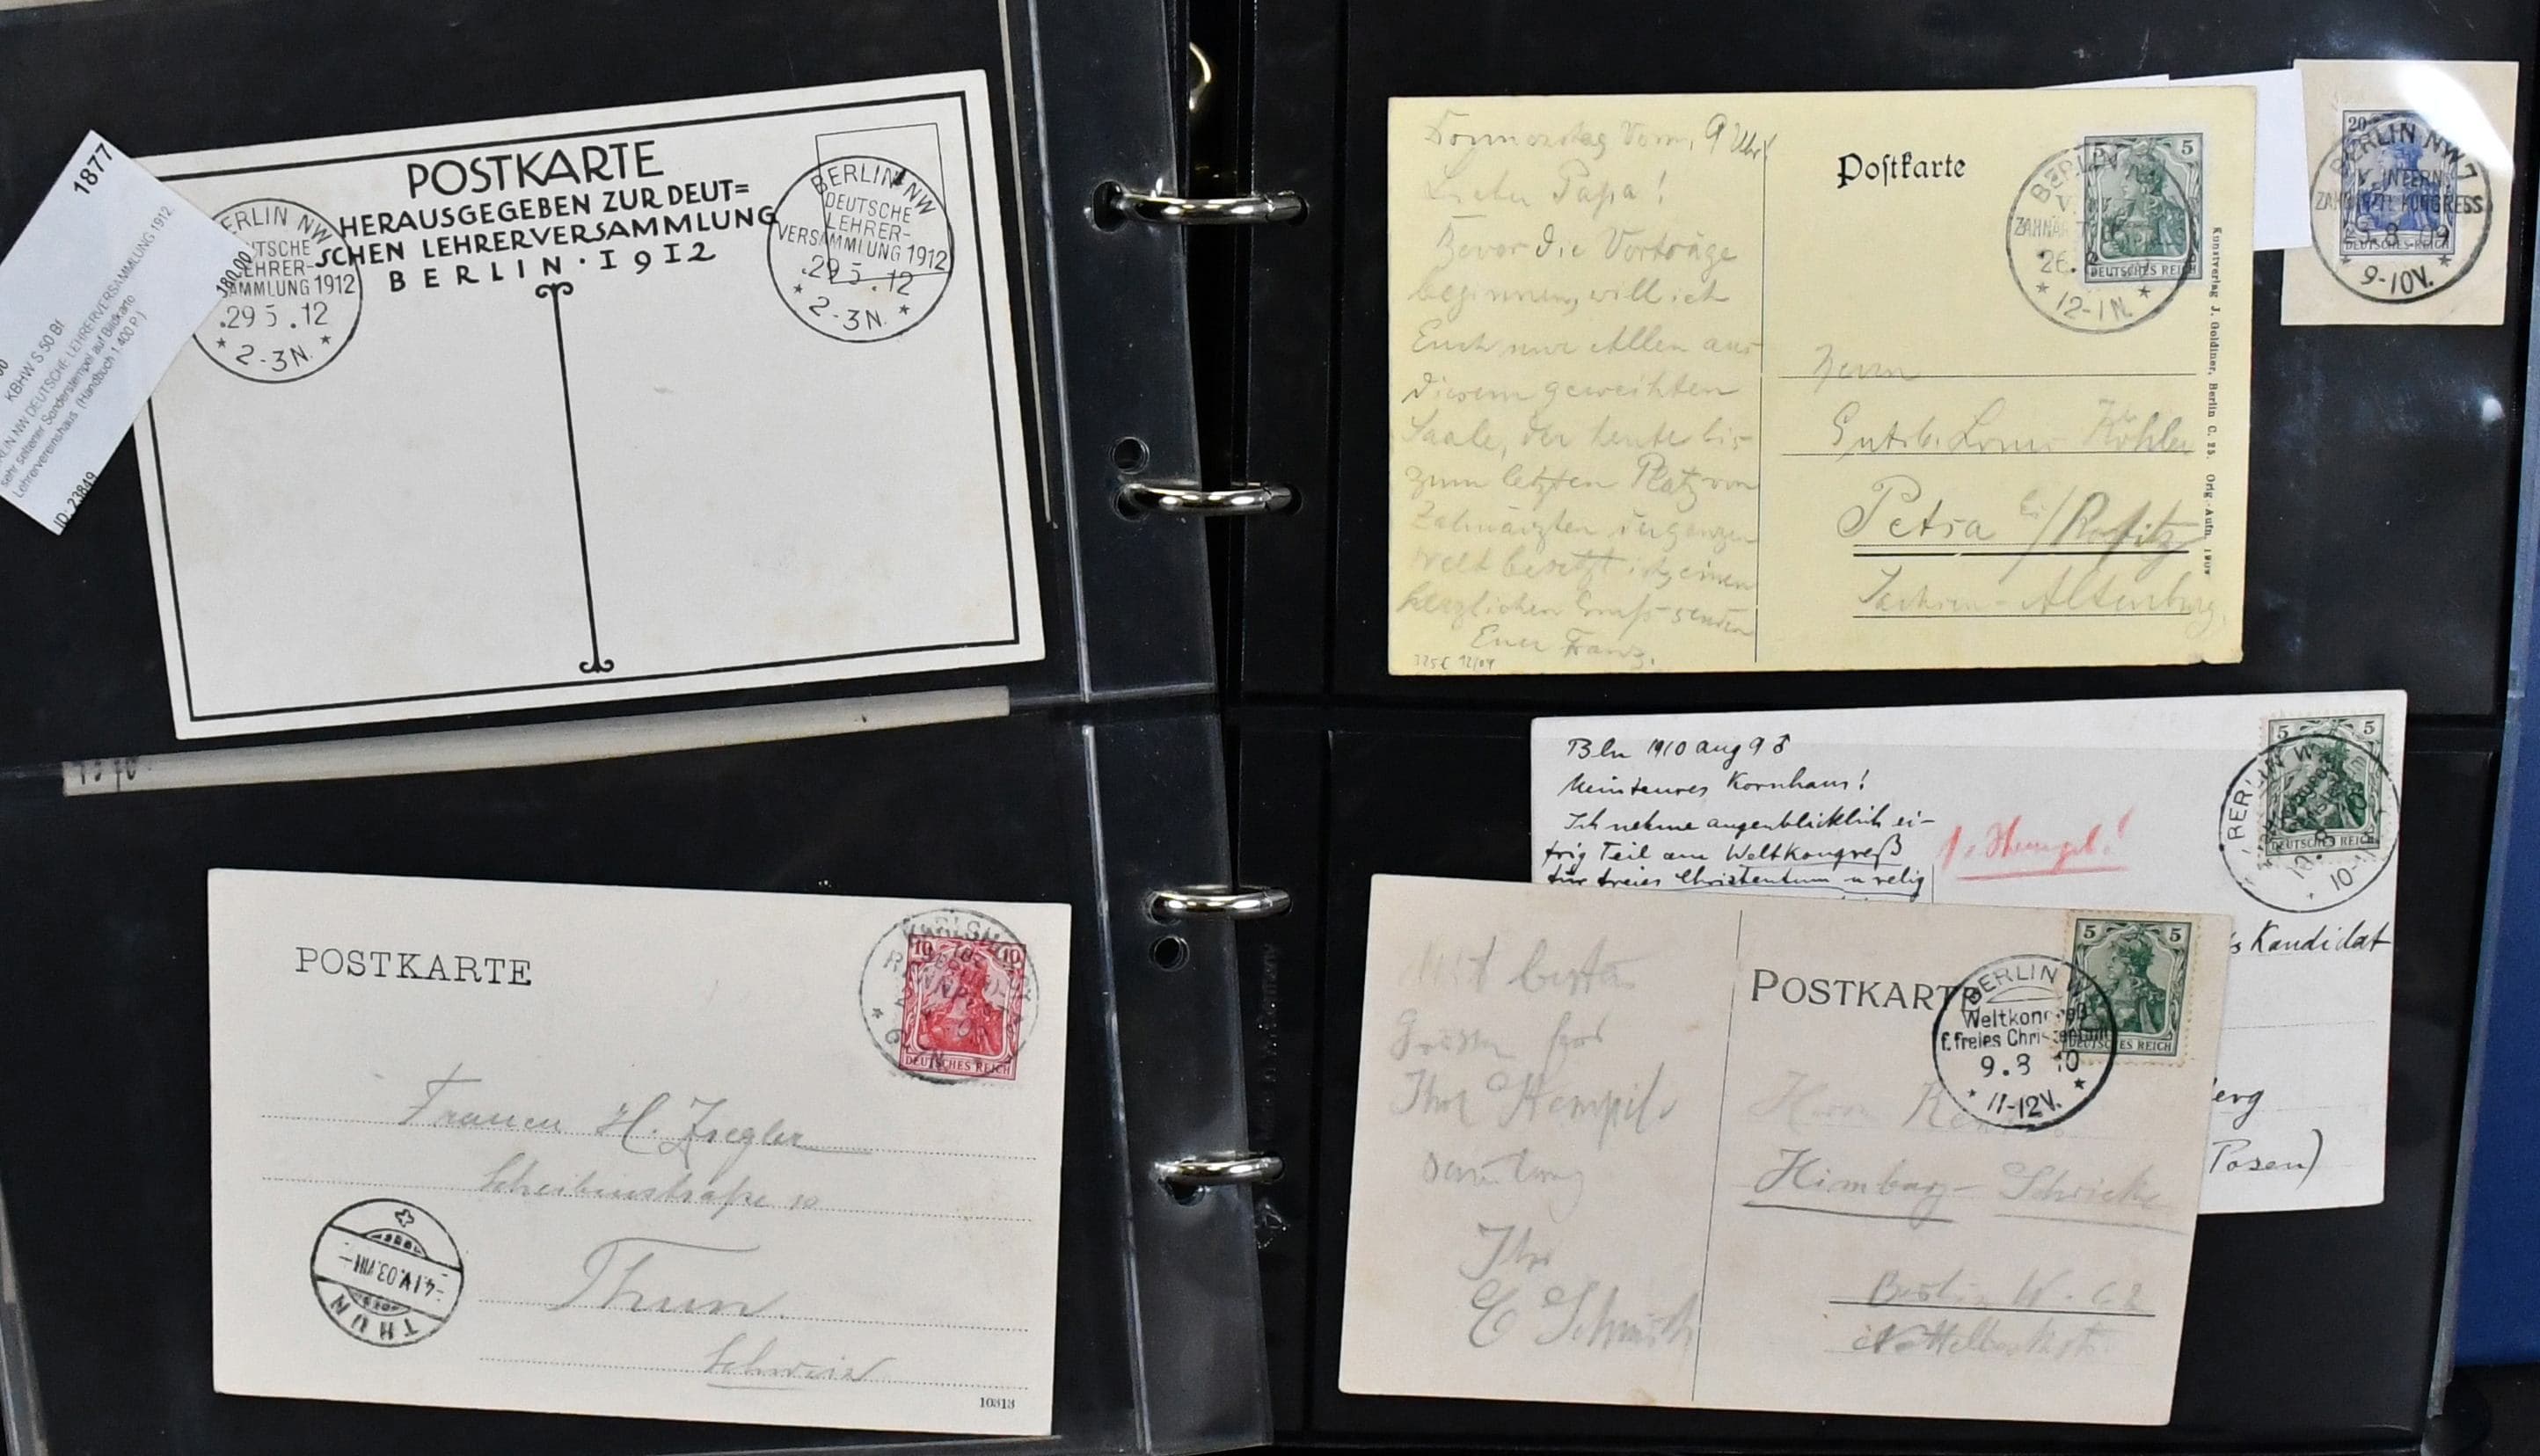 1877
180,00
KBHW S 50 Bf
BERLIN NW DEUTSCHE LEHRERVERSAMMLUNG 1912,
sehr seltener Sonderstempel auf Bildkarte
Lehrervereinshaus (Handbuch 1.400 P.)
ID: 23849
POSTKARTE
HERAUSGEGEBEN ZUR DEUT=
SCHEN LEHRERVERSAMMLUNG
BERLIN · 1912
ERLIN NW
UTSCHE
LEHRER-
AMMLUNG 1912
.29 5 .12
* 2-3N. *
BERLIN NW
DEUTSCHE
LEHRER-
VERSAMMLUNG 1912
.29 5 .12
* 2-3N. *
POSTKARTE
10 10
DEUTSCHES REICH
Frauen H. Ziegler
Scheibenstraße 10
Thun.
Schweiz
-4.IV.03.VIII-
THUN
10313
Donnerstag Vorm. 9 Uhr!
Lieber Papa!
Bevor die Vorträge
beginnen, will ich
Euch nur Allen aus
diesem geweihten
Saale, der heute bis
zum letzten Platz von
Zahnärzten der ganzen
Welt besetzt ist, einen
herzlichen Gruß senden
Euer Franz.
325€ 12/04
Postkarte
5 5
DEUTSCHES REICH
BERLIN
V.
26.
* 12-1N. *
Herrn
Gutsb. Louis Köhler
Petsa bei/Rositz
Sachsen-Altenburg.
Kunstverlag J. Goldiner, Berlin C. 25. Orig.-Aufn.
20
DEUTSCHES REICH
BERLIN NW 7
V. INTERN.
ZAHNÄRZTL. KONGRESS
8 09
* 9-10V. *
Bln 1910 Aug 9 ♂
Mein teures Kornhaus!
Ich nehme augenblicklich ei-
frig Teil am Weltkongreß
für freies Christentum u relig
1. Stempel!
5 5
DEUTSCHES REICH
BERLIN W
10.8
10-11
s Kandidat
erg
Posen)
Mit besten
Ihr
C Schmidt
POSTKARTE
5 5
DEUTSCHES REICH
BERLIN W
Weltkongreß
f. freies Christentum
9.8 10
* 11-12V. *
Herrn
Berlin W. 62